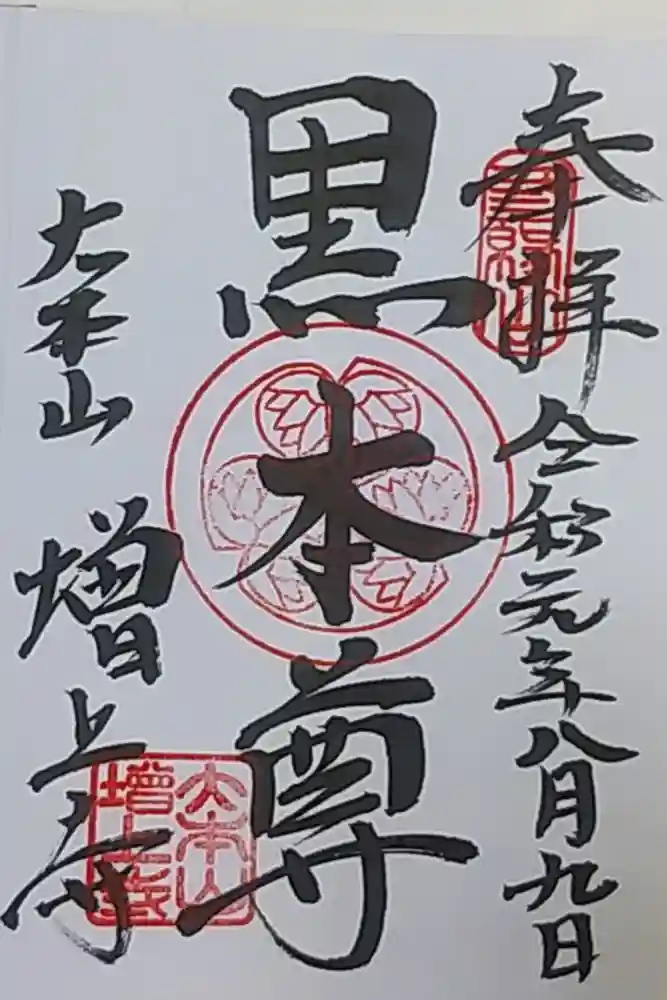 奉拝 令和元年八月九日
黒本尊
大本山 増上寺
大本山
増上寺